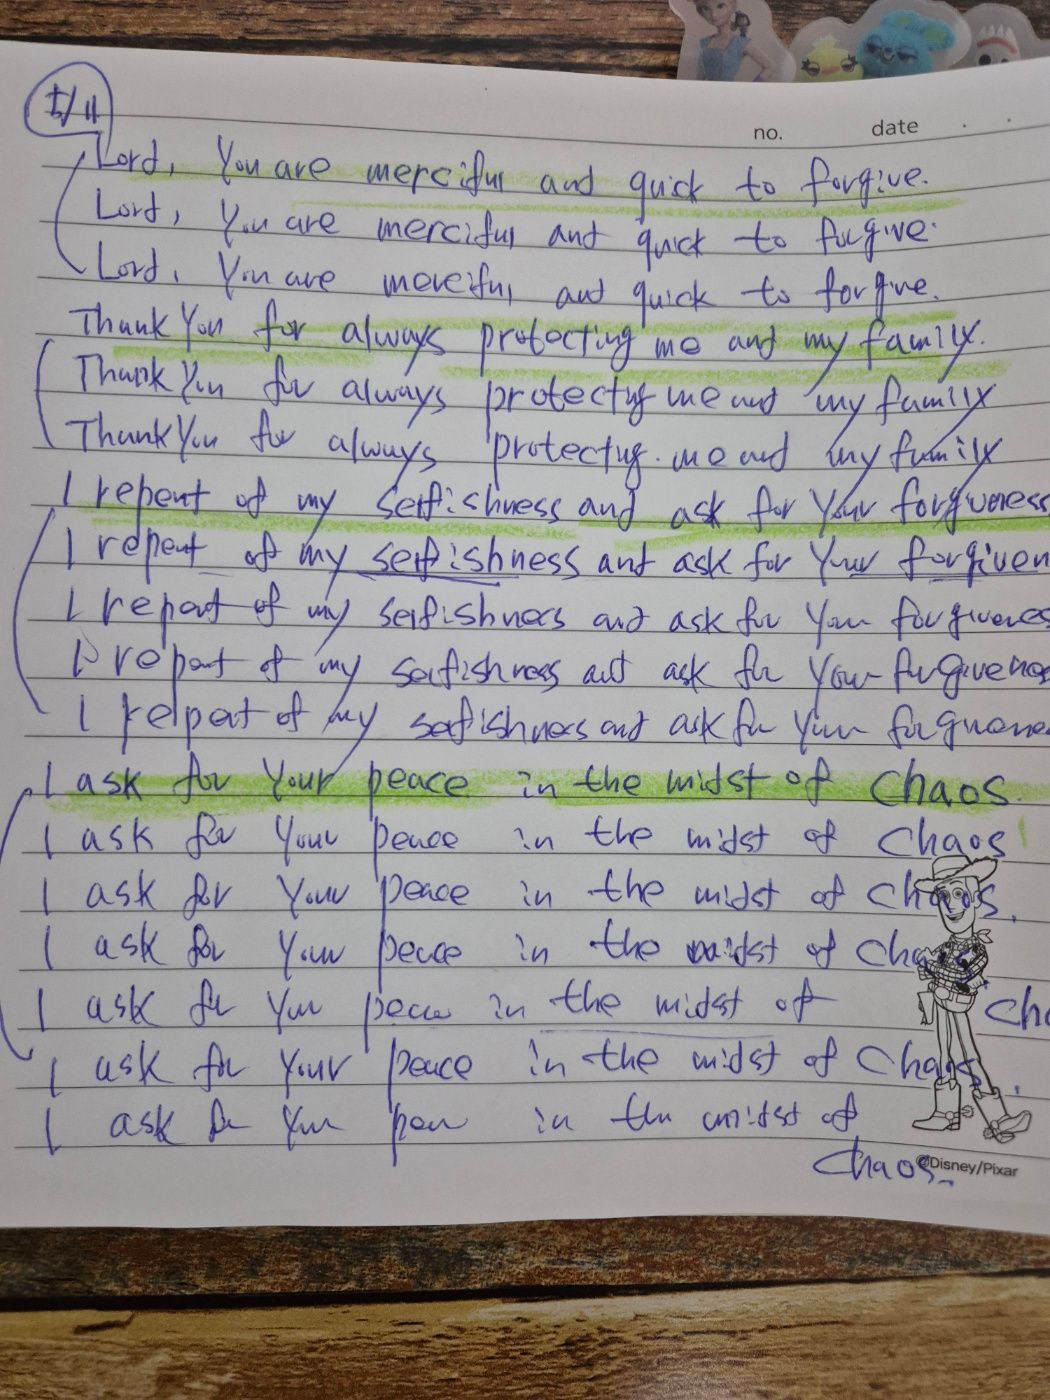 5/11
no. date
Lord, You are merciful and quick to forgive.
Lord, You are merciful and quick to forgive.
Lord, You are merciful and quick to forgive.
Thank You for always protecting me and my family.
Thank You for always protecting me and my family
Thank You for always protecting me and my family
I repent of my selfishness and ask for Your forgiveness
I repent of my selfishness and ask for Your forgiven
I repent of my selfishness and ask for Your forgivenes
I repent of my selfishness and ask for Your forgivenes
I repent of my selfishness and ask for Your forgivenes
I ask for Your peace in the midst of Chaos.
I ask for Your peace in the midst of Chaos
I ask for Your peace in the midst of Chaos.
I ask for Your peace in the midst of Cha
I ask for Your peace in the midst of Cha
I ask for Your peace in the midst of Chaos.
I ask for Your peace in the midst of
Chaos.
©Disney/Pixar